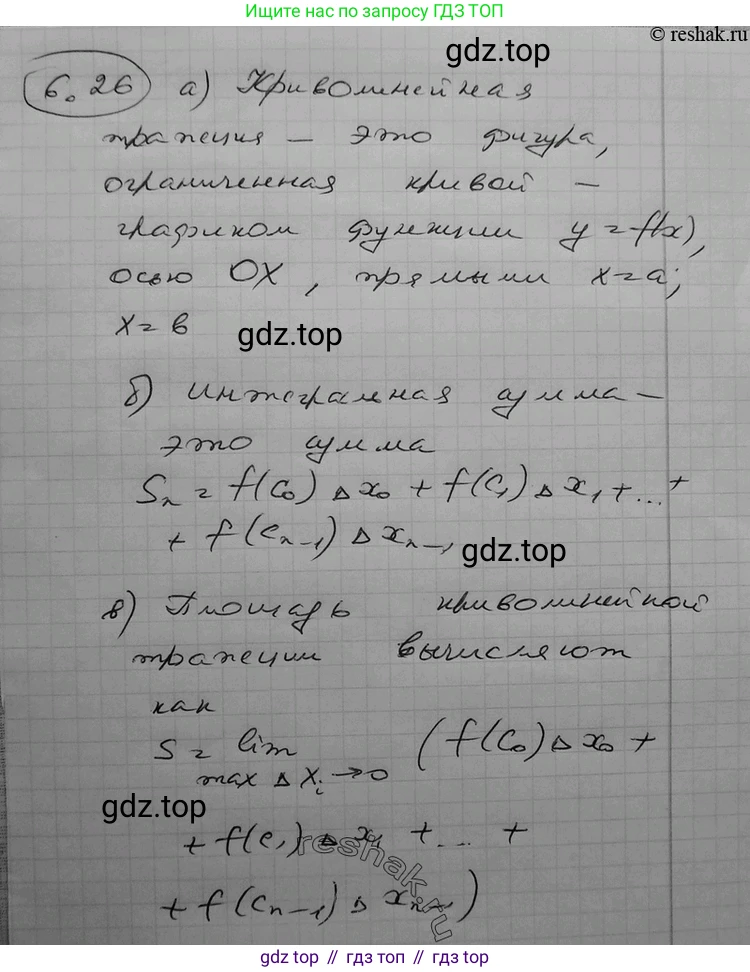 Ищите нас по запросу ГДЗ ТОП
© reshak.ru
gdz.top
6.26 а) Криволинейная
трапеция – это фигура,
ограниченная кривой –
графиком функции y = f(x),
осью OX, прямыми x=a;
x=в
gdz.top
б) Интегральная сумма –
это сумма
Sₙ = f(c₀) Δx₀ + f(c₁) Δx₁ + ... +
+ f(cₙ₋₁) Δxₙ₋₁
gdz.top
в) Площадь криволинейной
трапеции вычисляют
как
S = lim (f(c₀) Δx₀ +
max Δxᵢ → 0
gdz.top
+ f(c₁) Δx₁ + ... +
reshak.ru
+ f(cₙ₋₁) Δxₙ₋₁)
gdz.top // гдз.топ // gdz.top // гдз.топ